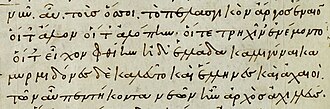 νῦν αὖ τοὺς ὅσσοι τὸ πελασγικὸν ἄργος ἔναιον
οἵ τ' ἄλον οἵ τ' ἀλόπην οἵ τε τρηχῖν' ἐνέμοντο
οἵ τ' εἶχον φθίην ἠδ' ἑλλάδα καλλιγύναικα
μυρμιδόνες δὲ καλεῦντο καὶ ἕλληνες καὶ ἀχαιοὶ
τῶν αὖ πεντήκοντα νεῶν ἦν ἀρχὸς ἀχιλλεύς